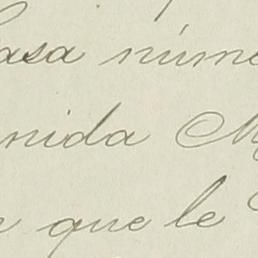 casa núme
nida M
que le